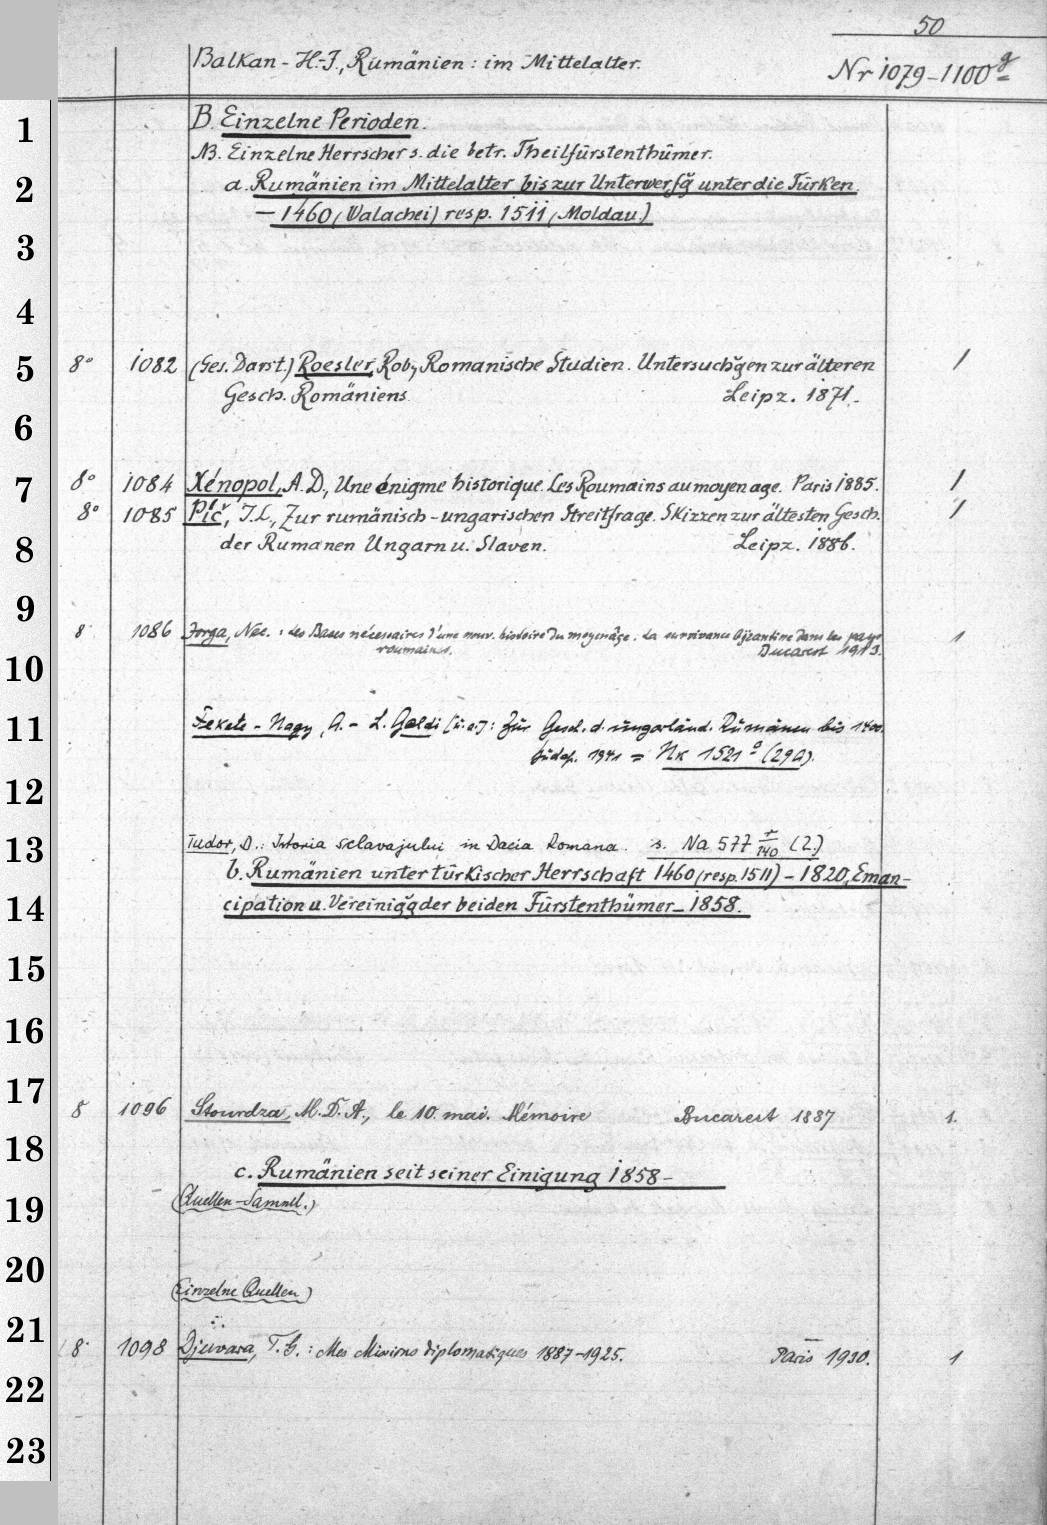 50
Balkan-H.-I., Rumänien: im Mittelalter.
Nr 1079-1100g
1
B. Einzelne Perioden.
NB. Einzelne Herrscher s. die betr. Theilfürstenthümer.
2
a. Rumänien im Mittelalter bis zur Unterwerfg̃ unter die Türken
— 1460 (Walachei) resp. 1511 (Moldau.)
3
4
5
8° 1082 (Ges. Darst.) Roesler, Rob., Romanische Studien. Untersuchg̃en zur älteren 1
Gesch. Romäniens. Leipz. 1871.
6
7
8° 1084 Xénopol, A. D., Une énigme historique. Les Roumains au moyen age. Paris 1885. 1
8° 1085 Pič, J. L., Zur rumänisch-ungarischen Streitfrage. Skizzen zur ältesten Gesch. 1
8
der Rumänen Ungarn u. Slaven. Leipz. 1886.
9
8° 1086 Jorga, Nic.: Les Bases nécessaires d'une nouv. histoire du moyenâge. La survivance byzantine dans les pays 1
roumains. Bucarest 1913.
10
11
Fekete-Nagy, A. - L. Galdi [u.a.]: Zur Gesch. d. ungarländ. Rumänen bis 1400.
Budap. 1941 = Nk 1521 a (29a).
12
13
Tudor, D.: Istoria sclavajului in Dacia Romana. s. Na 577 r/140 (2.)
b. Rumänien unter türkischer Herrschaft 1460 (resp. 1511) - 1820, Eman-
14
cipation u. Vereinigg̃ der beiden Fürstenthümer - 1858.
15
16
17
8 1096 Stourdza, M. D. A., le 10. mai. Mémoire Bucarest 1887 1.
18
c. Rumänien seit seiner Einigung 1858-
19
(Quellen-Samml.)
20
(Einzelne Quellen)
21
8° 1098 Djuvara, T. G.: Mes Missions diplomatiques 1887-1925. Paris 1930. 1
22
23